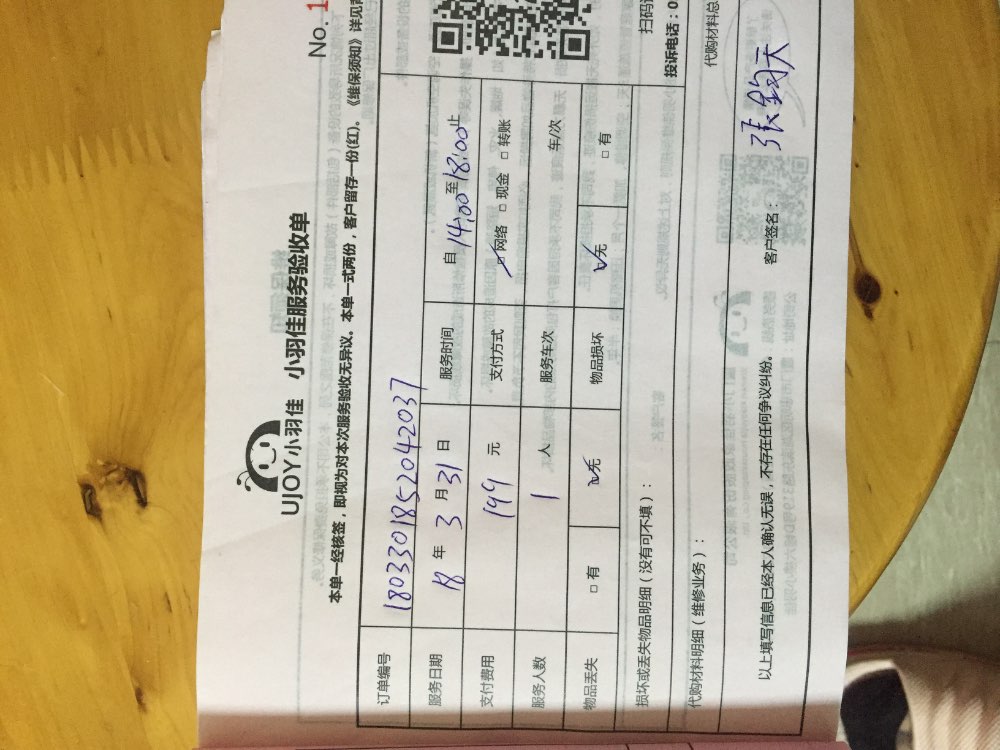 No. 1
UJOY小羽佳 小羽佳服务验收单
本单一经核签，即视为对本次服务验收无异议。本单一式两份，客户留存一份(红)。《维保须知》详见背
订单编号 1803301852042037
服务日期 18 年 3 月 31 日 服务时间 自 14:00 至 18:00 止
支付费用 199 元 支付方式 ☑网络 □现金 □转账
服务人数 1 人 服务车次 车/次
物品丢失 □有 ☑无 物品损坏 ☑无 □有
扫码
损坏或丢失物品明细（没有可不填）： 投诉电话：0
代购材料明细（维修业务）： 代购材料总
以上填写信息已经本人确认无误，不存在任何争议纠纷。 客户签名：